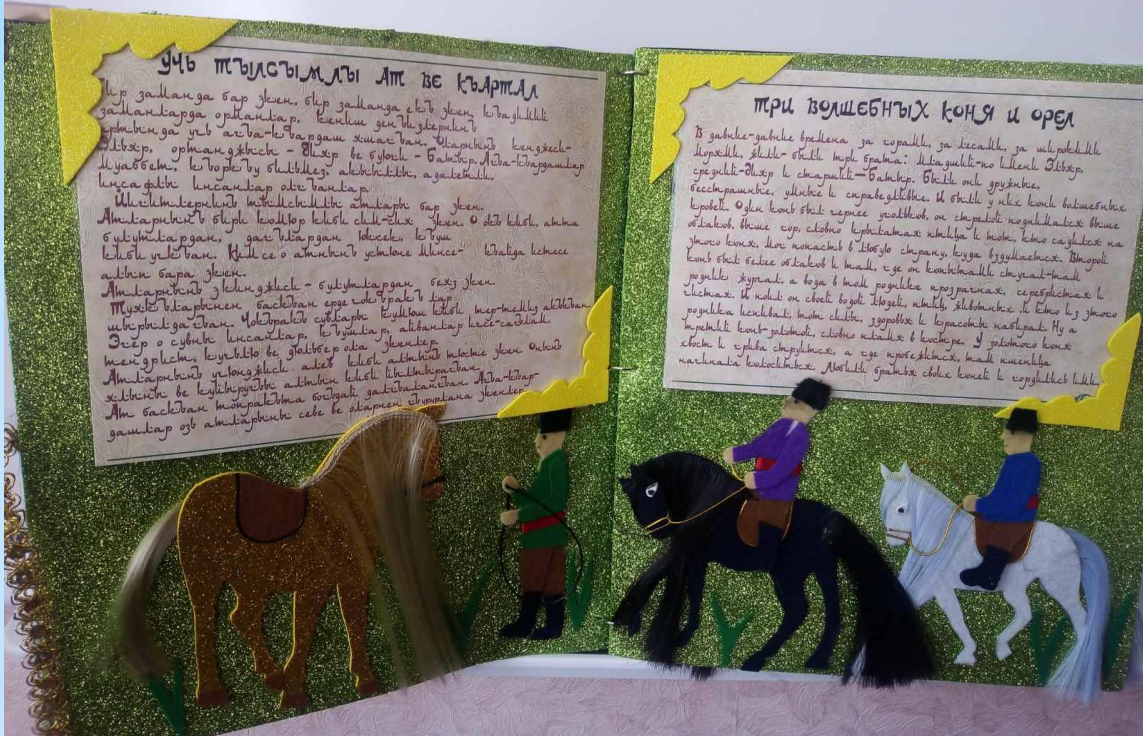 УЧЬ ТЫЛСЫМЛЫ АТ ВЕ КЪАРТАЛ
Бир заманда бар экен, бир заманда ёкъ экен, къадимий
заманларда орманлар, кениш денъизлернинъ
артында учь агъа-къардаш яшагъан. Оларнынъ кенджеси-
Эльвэр, ортанджысы - Энвер ве буюги - Батыр. Агъа-къардашлар
муаббетли, къоркъу бильмез, акъыллы, адалетли,
инсафлы инсанлар олгъанлар.
Йигитлернинъ тылсымлы атлары бар экен.
Атларнынъ бири комюр киби сим-сиях экен. О окъ киби, атта
булутлардан, дагълардан юксек, къуш
киби учкъан. Ким се о атнынъ устюне минсе- къайда истесе
алып бара экен.
Атларнынъ экинджиси - булутлардан беяз экен.
Туякъларынен баскъан ерде чокъракълар
шырылдагъан. Чокъракъ сувлары кумюш киби тер-темиз акъкъан.
Эгер о сувны инсанлар, къушлар, айванлар ичсе-сагълам,
тендирист, кучьлю ве дюльбер ола экенлер.
Атларнынъ учюнджиси алев киби алтын тюсте экен. Онынъ
ялыны ве къуйругъы алтын киби йылтырагъан.
Ат баскъан топракъта богъдай далгъалангъан. Агъа-къар-
дашлар озь атларыны севе ве оларнен гъурурлана экенлер.
ТРИ ВОЛШЕБНЫХ КОНЯ И ОРЕЛ
В давние-давние времена за горами, за лесами, за широкими
морями, жили-были три брата: младший-по имени Эльвэр,
средний-Энвер и старший-Батыр. Были они дружные,
бесстрашные, умные и справедливые. И были у них кони волшебных
кровей. Один конь был чернее угольков, он стрелой поднимался выше
облаков, выше гор, словно крылатая птица и тот, кто садился на
этого коня, мог попасть в любую страну, куда вздумается. Второй
конь был белее облаков и там, где он копытами стучал-там
родник журчал, а вода в том роднике прозрачная, серебристая и
чистая. И поил он своей водой людей, птиц, животных, и кто из этого
родника испивал, тот силы, здоровья и красоты набирал. Ну а
третий конь-золотой, словно пламя в костре. У золотого коня
хвост и грива струятся, а где пробежится, там пшеница
начинала колоситься. Любили братья своих коней и гордились ими.